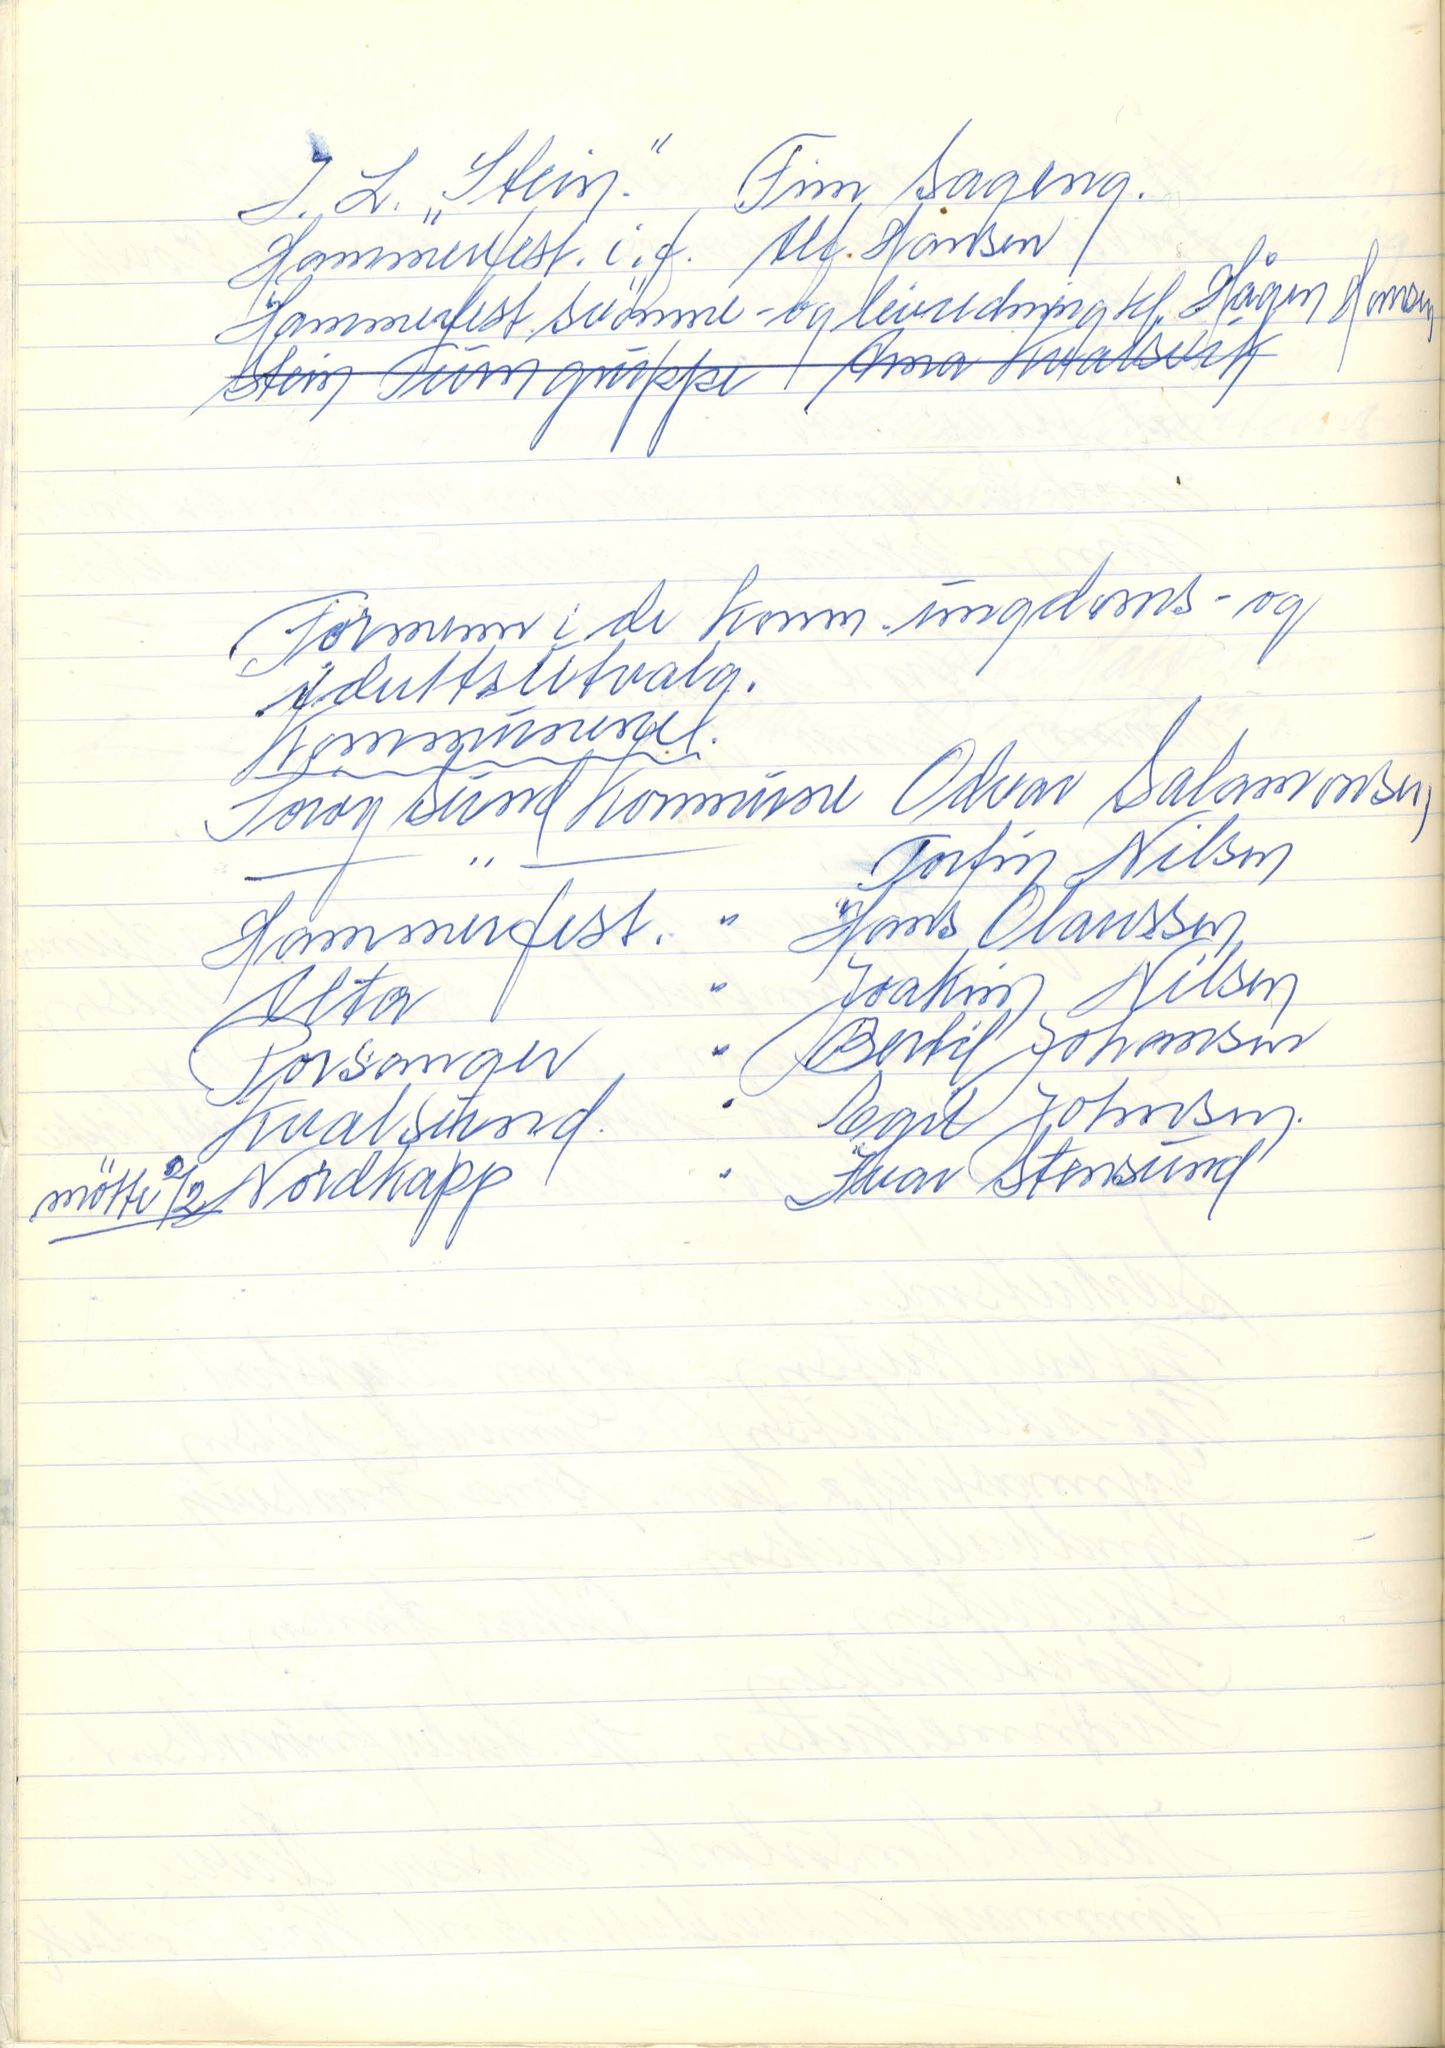 I. L. „Stein." Finn Sageng.
Hammerfest. i.f. Alf. Hansen
Hammerfest svømme- og livredning kl. Hågen Hansen
Stein Turn gruppe Arna Kvalsvik
Formenn i de komm. ungdoms- og
idrettsutvalg.
Kommunene.
Sørøysund kommune Odvar Salamonsen
— " — Torfin Nilsen
Hammerfest. " Hans Olaussen
Alta " Joakim Nilsen
Porsanger " Bertil Johansen
Kvalsund. " Egil Johnsen.
møtte 2/2 Nordkapp " Ivar Stensund